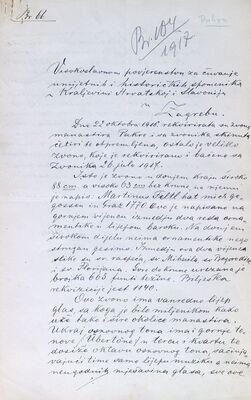 Br. 66
Br. 104
1917
Visokoslavnom povjerenstvu za čuvanje
umjetnih i historičkih spomenika
u Kraljevini Hrvatskoj i Slavoniji
u
Zagrebu.
Dne 22 oktobra 1916 rekvirirata su zvona
manastira Pakre i sa zvonika skinuta
četiri te otpremljena, ostalo je veliko
zvono, koje je rekvirirano i bačeno sa
zvonika 26 jula 1917.
Isto je zvono u donjem kraju široko
88 cm a visoko 63 cm bez krune, na njemu
je napis: Martinus Feltl hat mich ge-
gossen in Graz 1771. Ovo je napisano na
gornjem vijencu između dva reda orna-
mentike u lijepom baroku. Na donjem
širokom dijelu nema ornamentike nego
Između ova dva vijenca
slike su sv. raspeća, sv. Mihaila, sv. Bogorodice
i sv. Florijana. Gori do krune urezana je
brojka 663 funti težine. Pribježka
rekvizicije jest 1140.
Ovo zvono ima vanredno lijep
glas sa koga je bilo miljenikom kako
uže tako i šire okolice manastira.
Uz kraj osnovnog tona ima i gornje to-
nove (Übertöne) u tercu i kvartu te
dosiže oktavu osnovnog tona, sačinja-
vajući time samo lijepu muziku a nema
neugodnih mješavina glasa, sve ovo